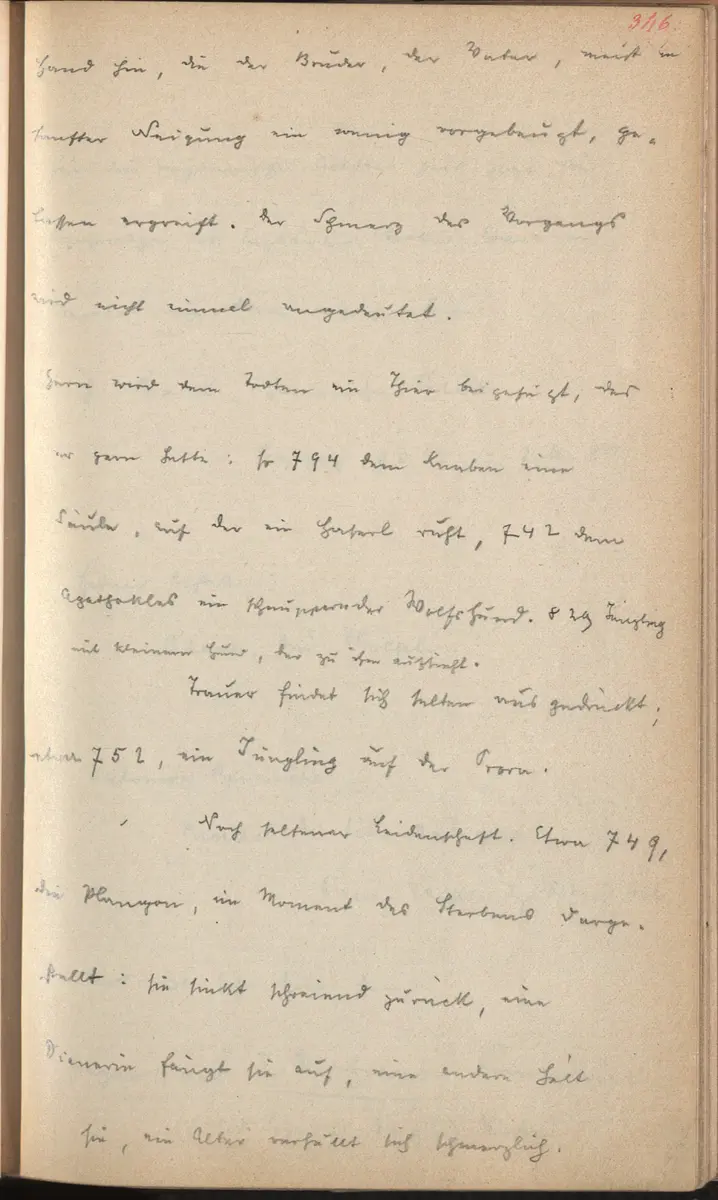 316.
Hand hin, die der Bruder, der Vater, meist in
sanfter Neigung ein wenig vorgebeugt, ge-
lassen ergreift. Der Schmerz des Vorgangs
wird nicht einmal angedeutet.
Gern wird dem Todten ein Thier beigefügt, das
er gern hatte: so 794 dem Knaben eine
Säule, auf der ein Haserl ruht, 742 dem
Agathokles ein schnuppernder Wolfshund. 829 Jüngling
mit kleinem Hund, der zu ihm aufsieht.
Trauer findet sich selten ausgedrückt;
etwa 752, ein Jüngling auf der Prora.
Noch seltener Leidenschaft. Etwa 749,
die Plangon, im Moment des Sterbens darge-
stellt: sie sinkt schreiend zurück, eine
Dienerin fängt sie auf, eine andere hält
sie, ein Alter verhüllt sich schmerzlich.